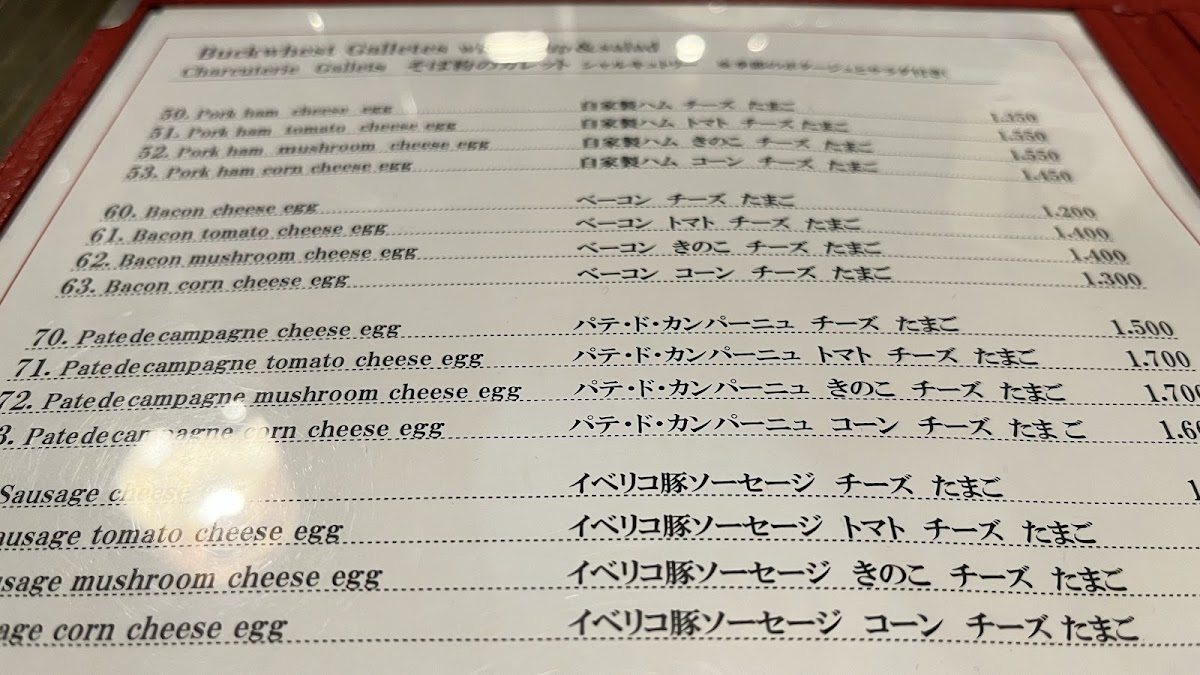 Buckwheat Galletes & salad
Charcuterie Gallets そば粉のガレット シャルキュトリー
50. Pork ham cheese egg 自家製ハム チーズ たまご 1.350
51. Pork ham tomato cheese egg 自家製ハム トマト チーズ たまご 1.550
52. Pork ham mushroom cheese egg 自家製ハム きのこ チーズ たまご 1.550
53. Pork ham corn cheese egg 自家製ハム コーン チーズ たまご 1.450
60. Bacon cheese egg ベーコン チーズ たまご 1.200
61. Bacon tomato cheese egg ベーコン トマト チーズ たまご 1.400
62. Bacon mushroom cheese egg ベーコン きのこ チーズ たまご 1.400
63. Bacon corn cheese egg ベーコン コーン チーズ たまご 1.300
70. Pate de campagne cheese egg パテ・ド・カンパーニュ チーズ たまご 1.500
71. Pate de campagne tomato cheese egg パテ・ド・カンパーニュ トマト チーズ たまご 1.700
72. Pate de campagne mushroom cheese egg パテ・ド・カンパーニュ きのこ チーズ たまご 1.700
3. Pate de campagne corn cheese egg パテ・ド・カンパーニュ コーン チーズ たまご 1.6
Sausage cheese イベリコ豚ソーセージ チーズ たまご 1
ausage tomato cheese egg イベリコ豚ソーセージ トマト チーズ たまご
usage mushroom cheese egg イベリコ豚ソーセージ きのこ チーズ たまご
age corn cheese egg イベリコ豚ソーセージ コーン チーズ たまご